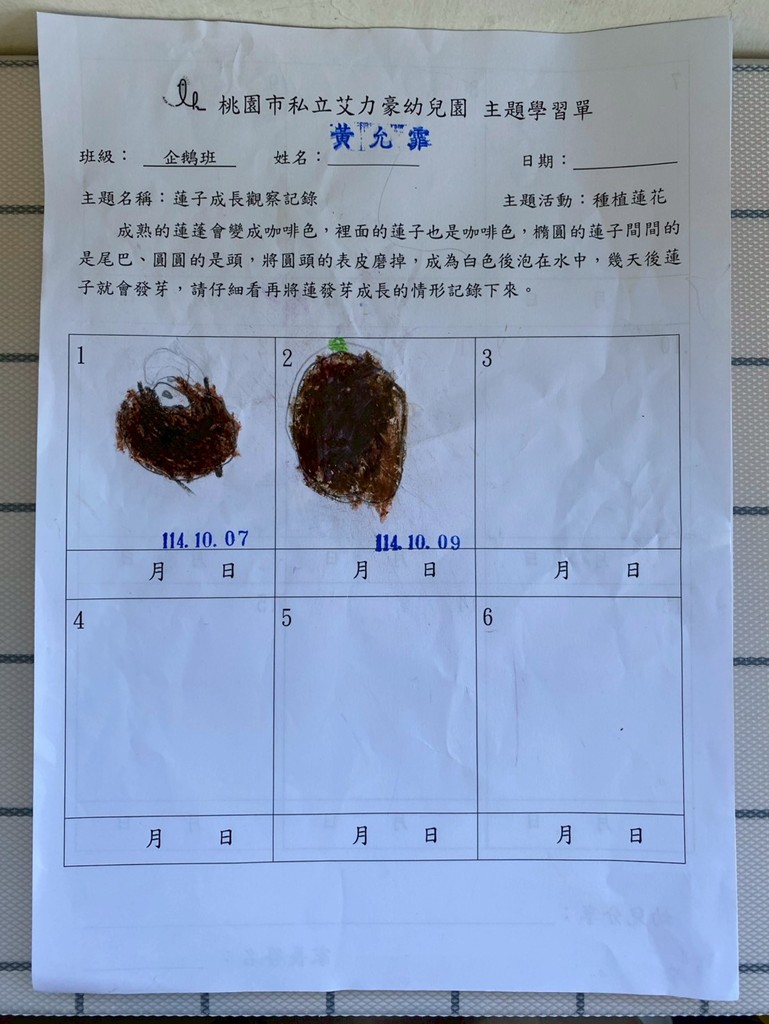 桃園市私立艾力豪幼兒園 主題學習單
班級： 企鵝班 姓名： 黃允霏 日期：
主題名稱：蓮子成長觀察記錄 主題活動：種植蓮花
成熟的蓮蓬會變成咖啡色，裡面的蓮子也是咖啡色，橢圓的蓮子間間的
是尾巴、圓圓的是頭，將圓頭的表皮磨掉，成為白色後泡在水中，幾天後蓮
子就會發芽，請仔細看再將蓮發芽成長的情形記錄下來。
1 2 3
114.10.07 114.10.09
月 日 月 日 月 日
4 5 6
月 日 月 日 月 日